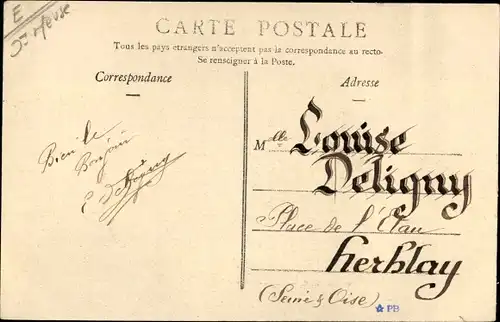 E
CARTE POSTALE
Tous les pays étrangers n'acceptent pas la correspondance au recto.
Se renseigner à la Poste.
Correspondance
Adresse
Bien le
Bonjour
E
Mlle Louise
Deligny
Place de l'Etau
Herblay
(Seine & Oise)
PB